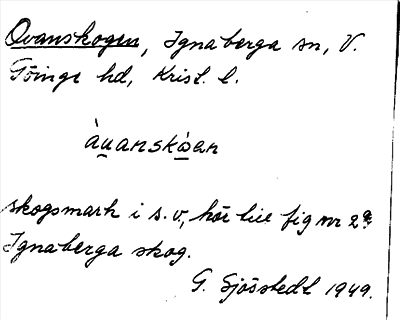 Ovanskogen, Ignaberga sn, V.
Göinge hd, Krist. l.
àu̲anskò̲en
skogsmark i s.v, hör till fig nr 2 a
Ignaberga skog.
G. Sjöstedt 1949.